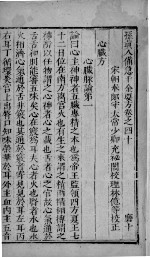 孫真人備急千金要方卷之四十 磨十
宋朝奉郎守太常少卿充秘閣校理林億等校正
心臟方
心臟脈論第一
論曰心主神神者五臟專精之本也為帝王監領四方夏王七
十二日位在南方離宮火也有生之來謂之精兩精相搏謂之
神所以任物謂之心神者心之藏也舌者心之官故心氣通於
舌舌和則能審五味矣心在竅為耳夫心者火也腎者水也水
火相濟心氣通於舌舌非竅也其通於竅者寄見於耳左耳丙
右耳丁循環炎宮上出唇口知味榮華於耳外主血內主五音